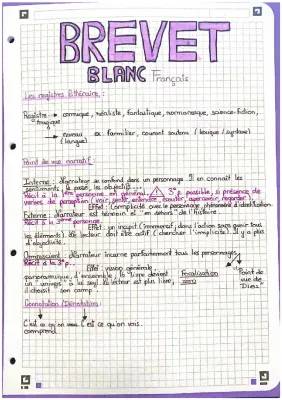 BREVET
BLANC Français
Les registres littéraires :
Registre → comique, réaliste, fantastique, romanesque, science-fiction,
tragique
niveau ex: familier, courant, soutenu (lexique / syntaxe)
(langue)
Point de vue narratif
Interne : Narrateur se confond dans un personnage. Il en connaît les
sentiments, le passé, les objectifs...
Récit à la 1ère personne en général ⚠ 3e p. possible, si présence de
verbes de perception (voir, sentir, entendre, écouter, apercevoir, regarder)
Effet : complicité avec le personnage, phénomène d'identification
Externe : Narrateur est témoin et "en dehors" de l'histoire.
Récit à la 3ème personne.
Effet : un incipit (l'immersif, dans l'action sans avoir tous
les éléments). Le lecteur doit être actif (chercher l'implicite). Il y a plus
d'objectivité.
Omniscient : Narrateur incarne parfaitement tous les personnages.
Récit à la 3e p.
Effet : vision générale,
panoramique, d'ensemble, le livre devient Focalisation
un "univers" à lui seul. Le lecteur est plus libre, zéro
il choisit son camp.
Point de
vue de
"Dieu"
Connotation / Dénotation :
C'est ce qu'on C'est ce qu'on vois.
comprend